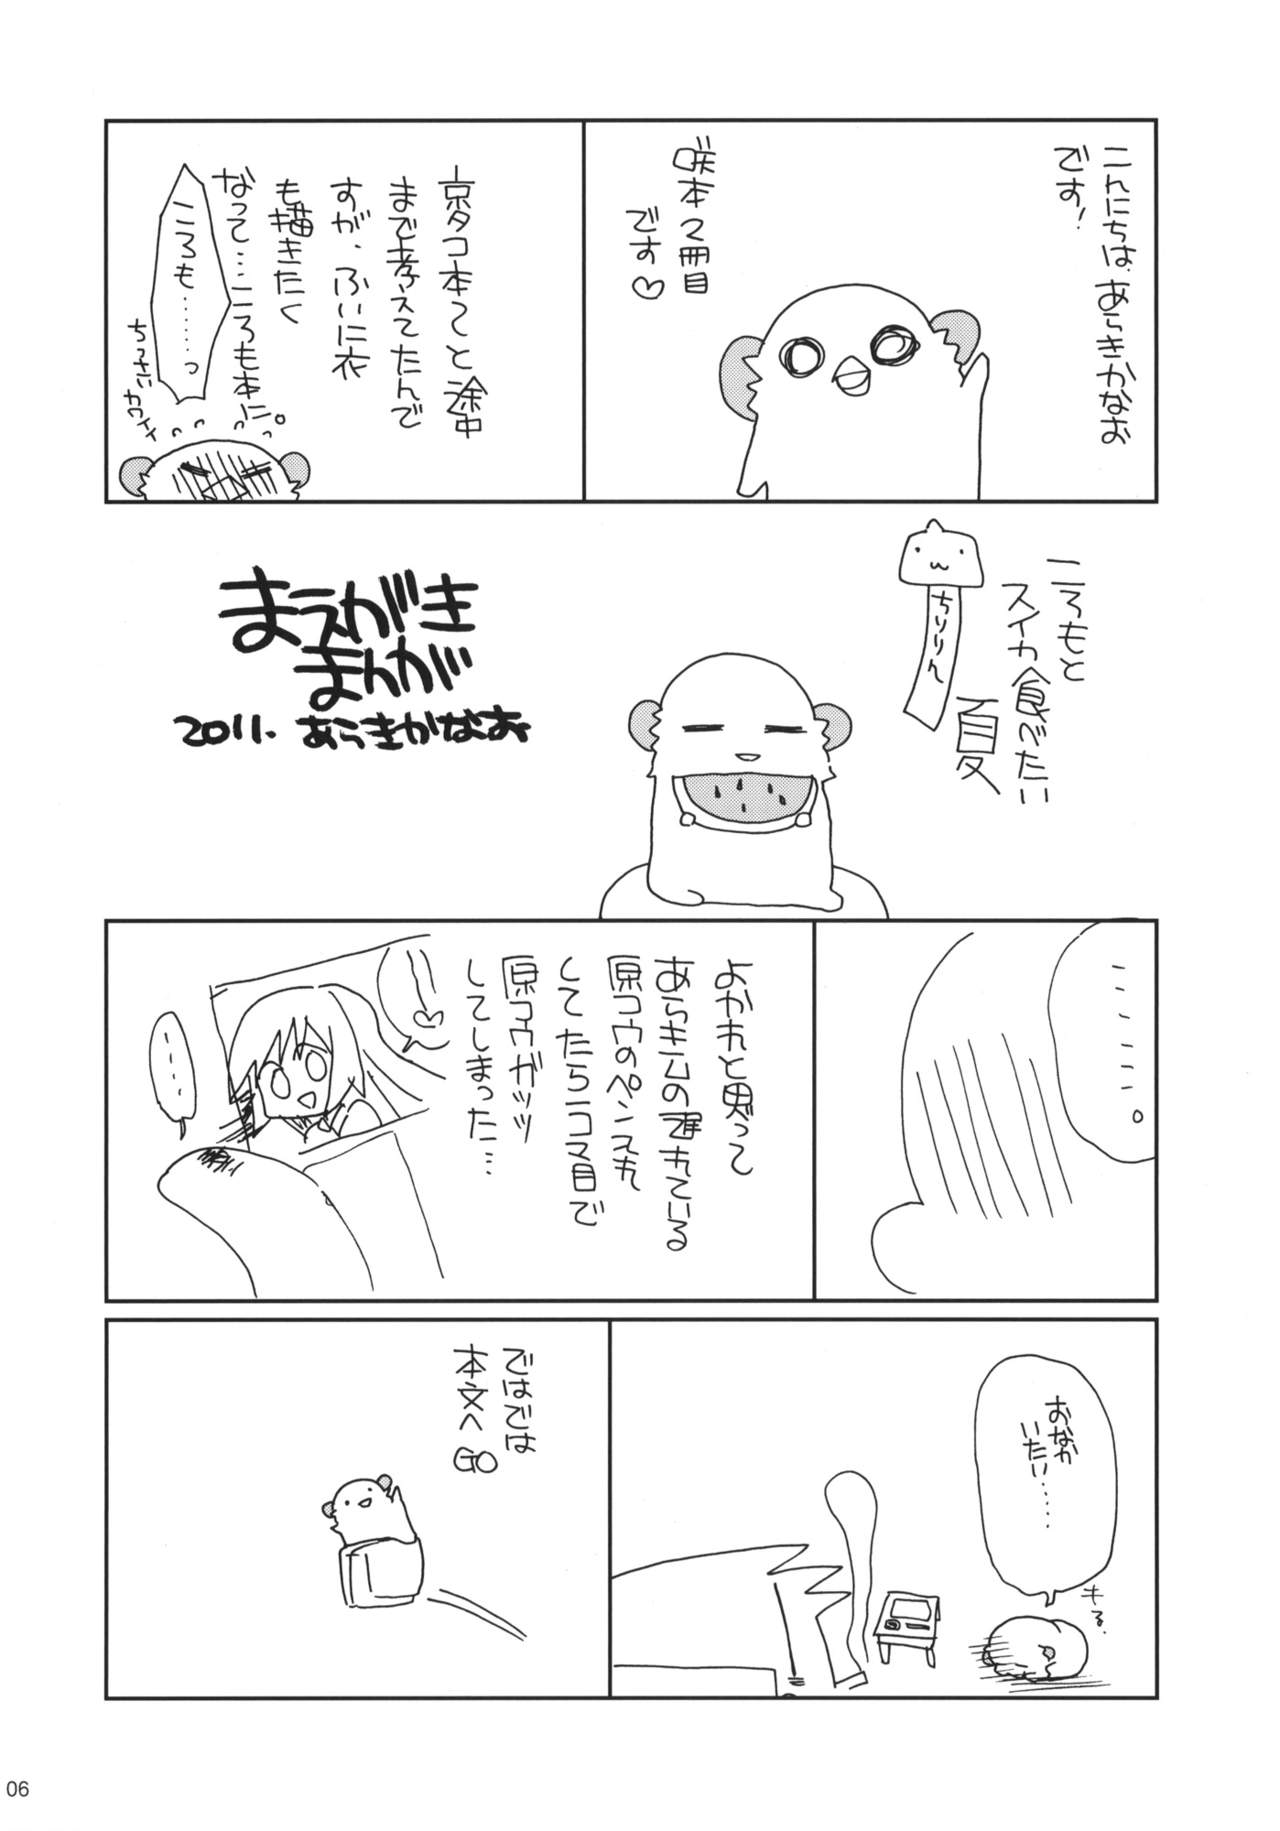 こんにちは、あらきかなお
です!
咲本2冊目
です♡
京タコ本で と途中
まで考えてたんで
すが、ふいに衣
も描きたく
なって…ころも本に。
ころも……っ
ちっさい カワイイ
ころもと
スイカ食べたい
夏
ちりりん
まえがき
まんが
2011. あらきかなお
……。
よかれと思って
あらきムの遅れている
原コウのペン入れ
してたら1コマ目で
原コウガッツ
してしまった…
……
おなか
いたい……
キる
ではでは
本文へ
GO
06